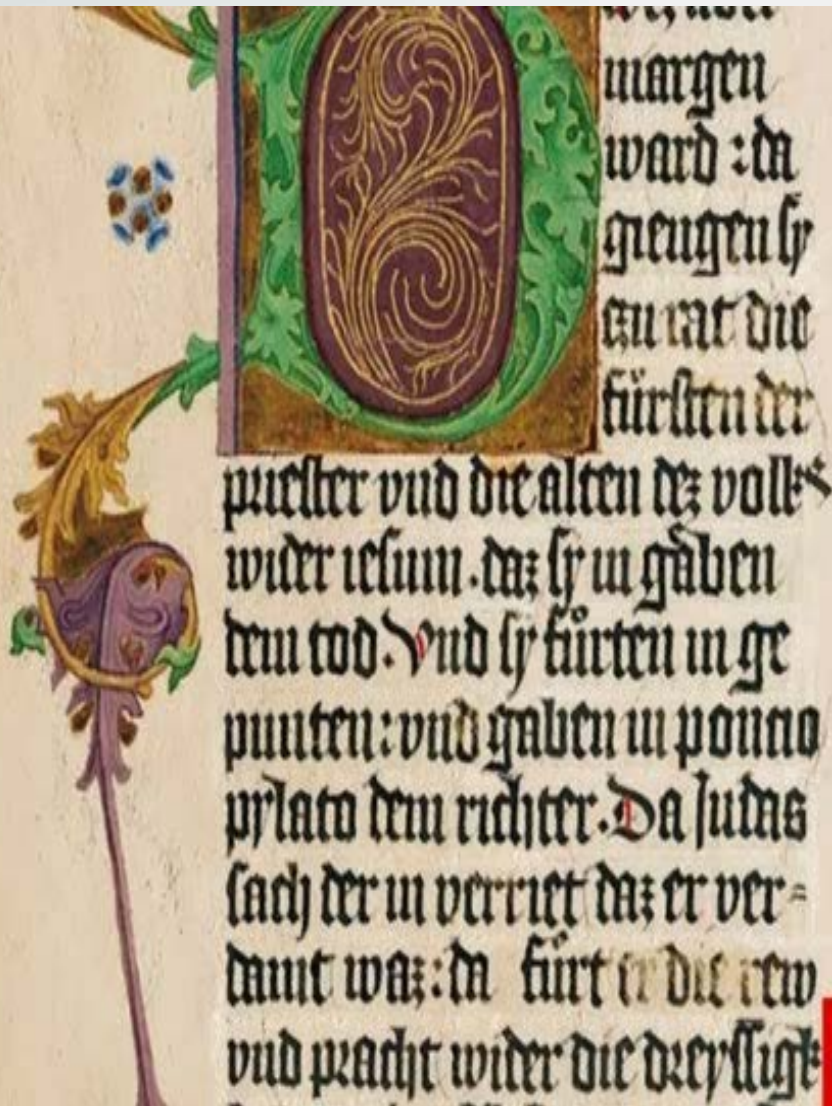 margen
ward : da
giengen sy
czu rat die
fürsten der
priester vnd die alten dez volks
wider iesum. daz sy in gäben
dem tod. Vnd sy fůrten in ge
punten : vnd gaben in poncio
pylato dem richter. Da Judas
sach der in verriet daz er ver=
damt waz : da fůrt er die rew
vnd pracht wider die dreyssigk